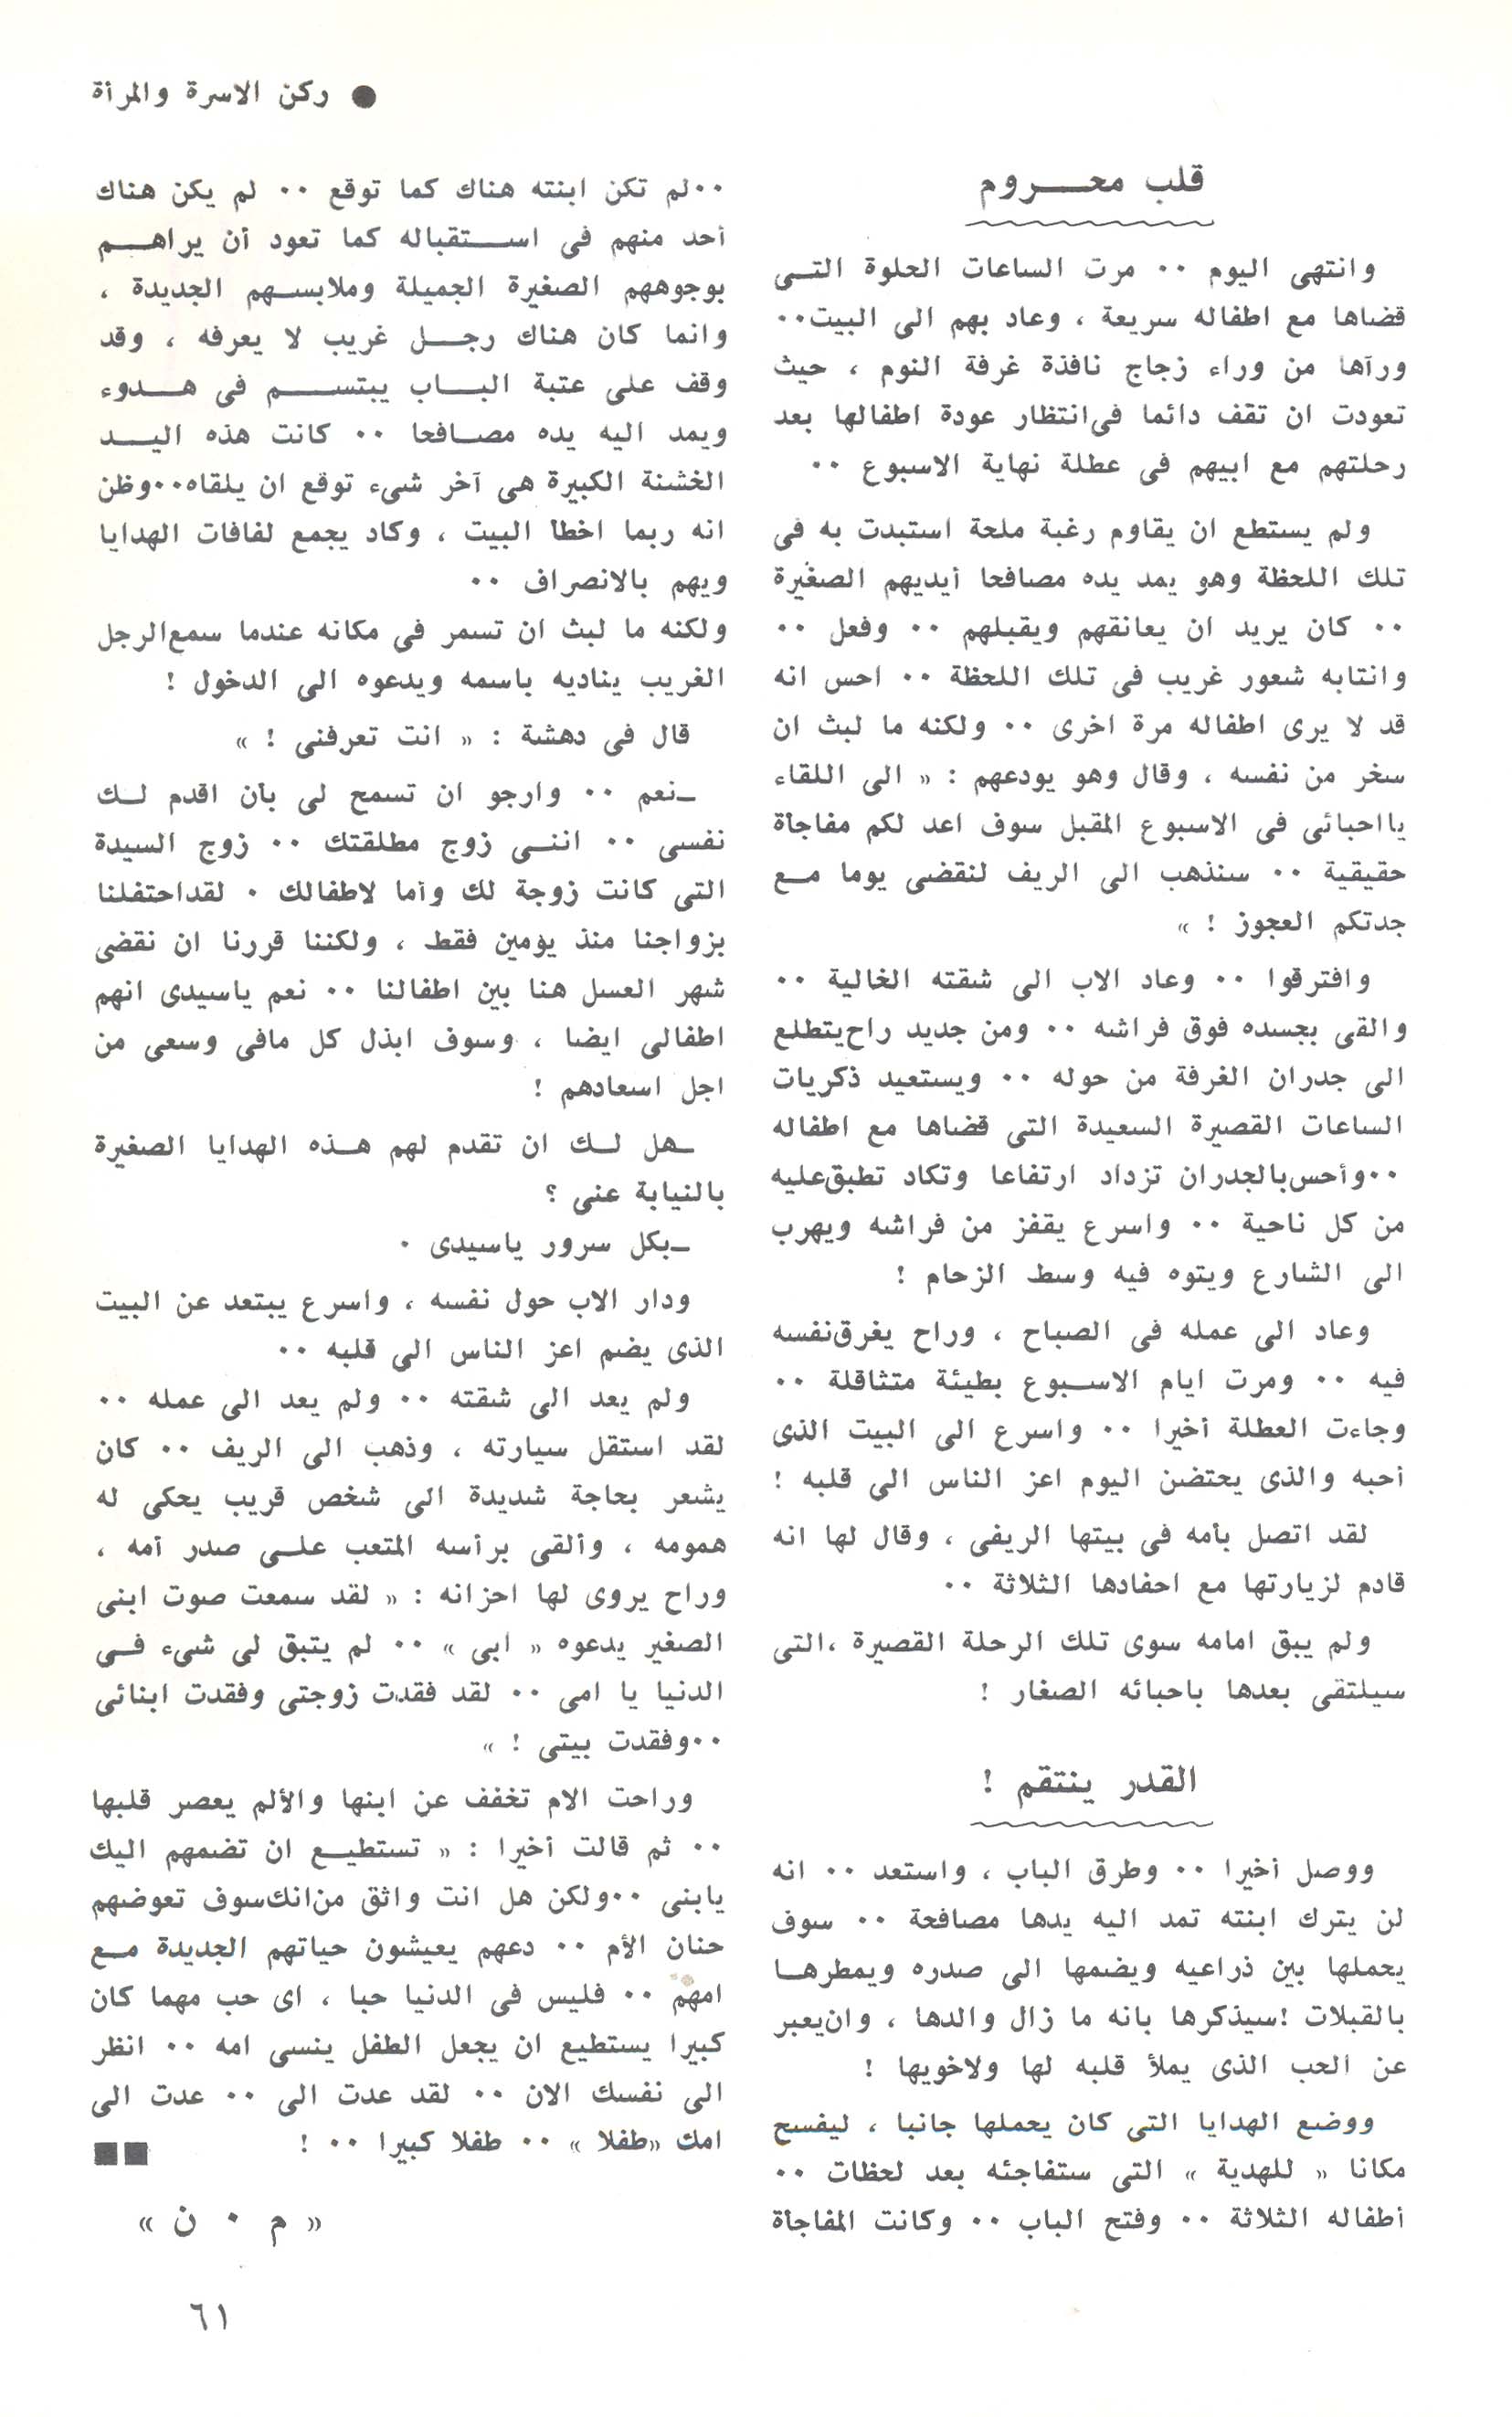 ● ركن الاسرة والمرأة
قلب محروم
وانتهى اليوم ٠٠ مرت الساعات الحلوة التى
قضاها مع اطفاله سريعة ، وعاد بهم الى البيت٠٠
ورآها من وراء زجاج نافذة غرفة النوم ، حيث
تعودت ان تقف دائما فى انتظار عودة اطفالها بعد
رحلتهم مع ابيهم فى عطلة نهاية الاسبوع ٠٠
ولم يستطع ان يقاوم رغبة ملحة استبدت به فى
تلك اللحظة وهو يمد يده مصافحا أيديهم الصغيرة
٠٠ كان يريد ان يعانقهم ويقبلهم ٠٠ وفعل ٠٠
وانتابه شعور غريب فى تلك اللحظة ٠٠ احس انه
قد لا يرى اطفاله مرة اخرى ٠٠ ولكنه ما لبث ان
سخر من نفسه ، وقال وهو يودعهم : « الى اللقاء
يااحبائى فى الاسبوع المقبل سوف اعد لكم مفاجأة
حقيقية ٠٠ سنذهب الى الريف لنقضى يوما مع
جدتكم العجوز ! »
وافترقوا ٠٠ وعاد الاب الى شقته الخالية ٠٠
والقى بجسده فوق فراشه ٠٠ ومن جديد راح يتطلع
الى جدران الغرفة من حوله ٠٠ ويستعيد ذكريات
الساعات القصيرة السعيدة التى قضاها مع اطفاله
٠٠وأحس بالجدران تزداد ارتفاعا وتكاد تطبق عليه
من كل ناحية ٠٠ واسرع يقفز من فراشه ويهرب
الى الشارع ويتوه فيه وسط الزحام !
وعاد الى عمله فى الصباح ، وراح يغرق نفسه
فيه ٠٠ ومرت ايام الاسبوع بطيئة متثاقلة ٠٠
وجاءت العطلة أخيرا ٠٠ واسرع الى البيت الذى
أحبه والذى يحتضن اليوم اعز الناس الى قلبه !
لقد اتصل بأمه فى بيتها الريفى ، وقال لها انه
قادم لزيارتها مع احفادها الثلاثة ٠٠
ولم يبق امامه سوى تلك الرحلة القصيرة ،التى
سيلتقى بعدها باحبائه الصغار !
القدر ينتقم !
ووصل أخيرا ٠٠ وطرق الباب ، واستعد ٠٠ انه
لن يترك ابنته تمد اليه يدها مصافحة ٠٠ سوف
يحملها بين ذراعيه ويضمها الى صدره ويمطرها
بالقبلات !سيذكرها بانه ما زال والدها ، وان يعبر
عن الحب الذى يملأ قلبه لها ولاخويها !
ووضع الهدايا التى كان يحملها جانبا ، ليفسح
مكانا « للهدية » التى ستفاجئه بعد لحظات ٠٠
أطفاله الثلاثة ٠٠ وفتح الباب ٠٠ وكانت المفاجأة
٠٠لم تكن ابنته هناك كما توقع ٠٠ لم يكن هناك
أحد منهم فى استقباله كما تعود أن يراهم
بوجوههم الصغيرة الجميلة وملابسهم الجديدة ،
وانما كان هناك رجل غريب لا يعرفه ، وقد
وقف على عتبة الباب يبتسم فى هدوء
ويمد اليه يده مصافحا ٠٠ كانت هذه اليد
الخشنة الكبيرة هى آخر شىء توقع ان يلقاه٠٠وظن
انه ربما اخطأ البيت ، وكاد يجمع لفافات الهدايا
ويهم بالانصراف ٠٠
ولكنه ما لبث ان تسمر فى مكانه عندما سمع الرجل
الغريب يناديه باسمه ويدعوه الى الدخول !
قال فى دهشة : « انت تعرفنى ! »
ـنعم ٠٠ وارجو ان تسمح لى بأن اقدم لك
نفسى ٠٠ اننى زوج مطلقتك ٠٠ زوج السيدة
التى كانت زوجة لك وأما لاطفالك ٠ لقد احتفلنا
بزواجنا منذ يومين فقط ، ولكننا قررنا ان نقضى
شهر العسل هنا بين اطفالنا ٠٠ نعم ياسيدى انهم
اطفالى ايضا ، وسوف ابذل كل مافى وسعى من
اجل اسعادهم !
ـهل لك ان تقدم لهم هذه الهدايا الصغيرة
بالنيابة عنى ؟
ـبكل سرور ياسيدى ٠
ودار الاب حول نفسه ، واسرع يبتعد عن البيت
الذى يضم اعز الناس الى قلبه ٠٠
ولم يعد الى شقته ٠٠ ولم يعد الى عمله ٠٠
لقد استقل سيارته ، وذهب الى الريف ٠٠ كان
يشعر بحاجة شديدة الى شخص قريب يحكى له
همومه ، وألقى برأسه المتعب على صدر أمه ،
وراح يروى لها احزانه : « لقد سمعت صوت ابنى
الصغير يدعوه « ابى » ٠٠ لم يتبق لى شىء فى
الدنيا يا امى ٠٠ لقد فقدت زوجتى وفقدت ابنائى
٠٠وفقدت بيتى ! »
وراحت الام تخفف عن ابنها والألم يعصر قلبها
٠٠ ثم قالت أخيرا : « تستطيع ان تضمهم اليك
يابنى ٠٠ولكن هل انت واثق من انك سوف تعوضهم
حنان الأم ٠٠ دعهم يعيشون حياتهم الجديدة مع
امهم ٠٠ فليس فى الدنيا حبا ، اى حب مهما كان
كبيرا يستطيع ان يجعل الطفل ينسى امه ٠٠ انظر
الى نفسك الان ٠٠ لقد عدت الى ٠٠ عدت الى
امك «طفلا» ٠٠ طفلا كبيرا ٠٠ !
« م ٠ ن »
٦١